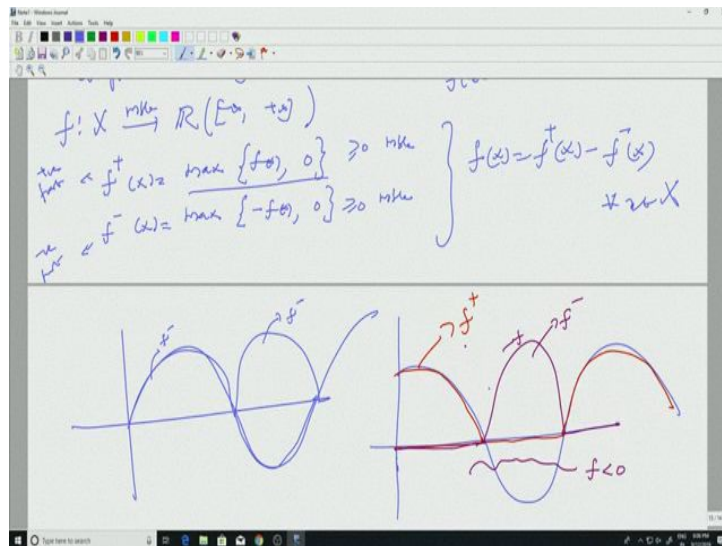 Note1 - Windows Journal
File Edit View Insert Actions Tools Help
f: X mble→ ℝ([-∞, +∞])
+ve part ← f⁺(x) = max {f(x), 0} ≥0 mble
-ve part ← f⁻(x) = max {-f(x), 0} ≥0 mble
f(x) = f⁺(x) - f⁻(x)
∀ x ∈ X
f⁻
f⁻
f⁺
f⁻
f<0
Type here to search
ENG